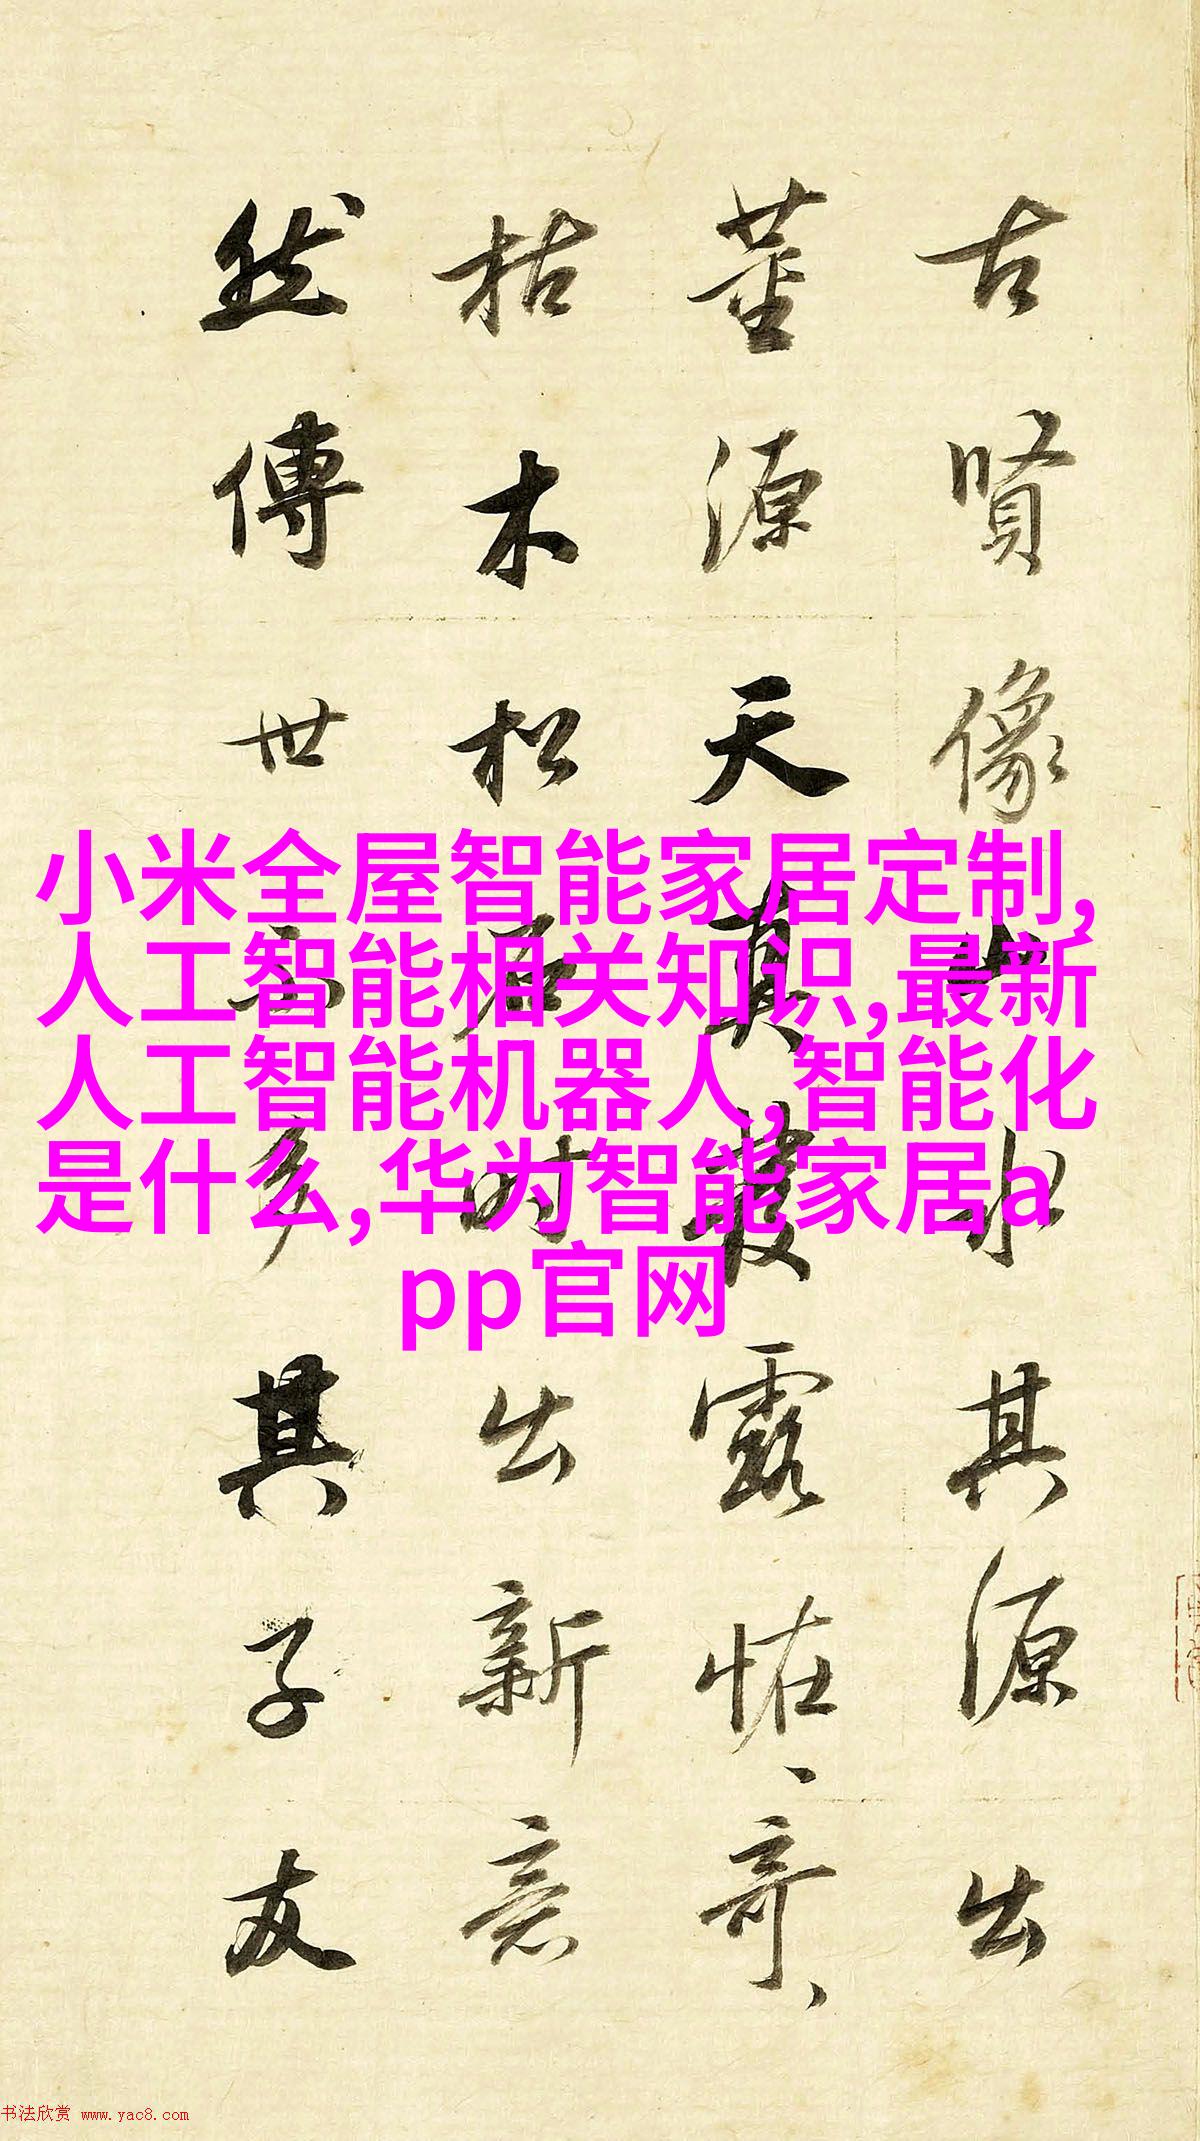 古賢像山水其源出
董源天真發露恠、奇、
枯木松石時出新意
然傳世不多其子友
小米全屋智能家居定制,
人工智能相关知识,最新
人工智能机器人,智能化
是什么,华为智能家居a
pp官网
书法欣赏 www.yac8.com